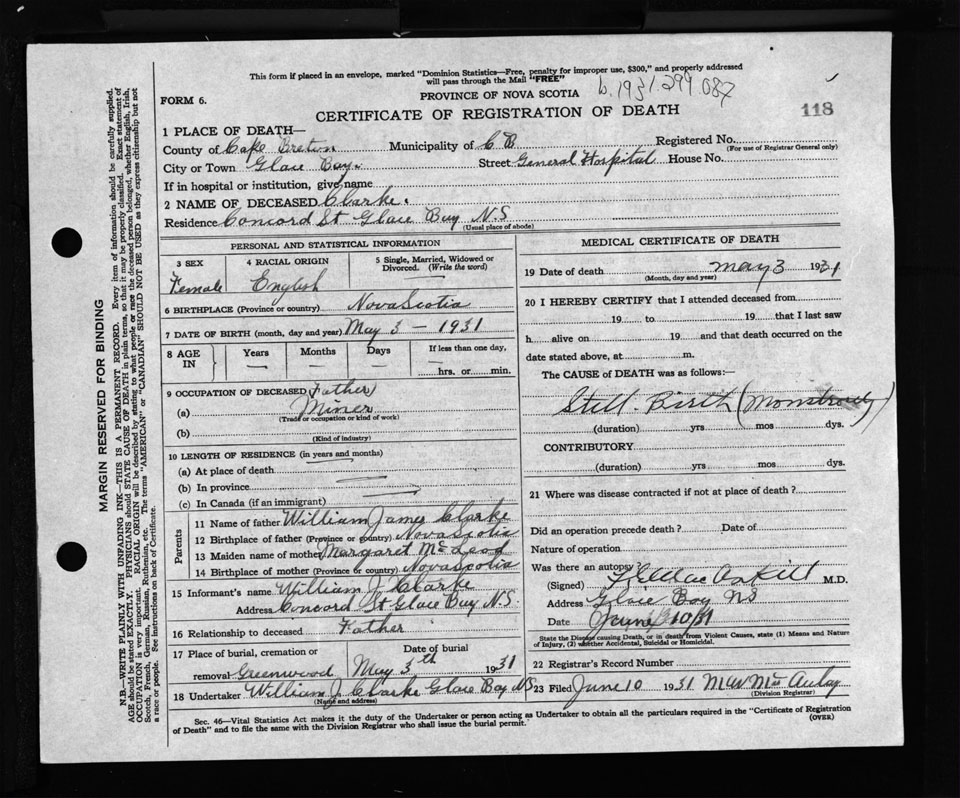 This form if placed in an envelope, marked "Dominion Statistics—Free, penalty for improper use, $300," and properly addressed
will pass through the Mail "FREE"
b. 1931.299.087
PROVINCE OF NOVA SCOTIA
FORM 6.
CERTIFICATE OF REGISTRATION OF DEATH
118
1 PLACE OF DEATH—
County of Cape Breton Municipality of C B Registered No.
(For use of Registrar General only)
City or Town Glace Bay. Street General Hospital House No.
If in hospital or institution, give name
2 NAME OF DECEASED Clarke.
Residence Concord St Glace Bay N.S
(Usual place of abode)
PERSONAL AND STATISTICAL INFORMATION
3 SEX 4 RACIAL ORIGIN 5 Single, Married, Widowed or Divorced. (Write the word)
Female English
6 BIRTHPLACE (Province or country) Nova Scotia
7 DATE OF BIRTH (month, day and year) May 3 – 1931
8 AGE IN Years Months Days If less than one day, hrs. or min.
9 OCCUPATION OF DECEASED Father)
(a) Miner
(Trade or occupation or kind of work)
(b)
(Kind of industry)
10 LENGTH OF RESIDENCE (in years and months)
(a) At place of death
(b) In province
(c) In Canada (if an immigrant)
Parents
11 Name of father William James Clarke
12 Birthplace of father (Province or country) Nova Scotia
13 Maiden name of mother Margaret McLeod
14 Birthplace of mother (Province or country) Nova Scotia
15 Informant's name William J Clarke
Address Concord St Glace Bay N.S
16 Relationship to deceased Father
17 Place of burial, cremation or removal Greenwood Date of burial May 3th 1931
18 Undertaker William J. Clarke Glace Bay NS
(Name and address)
MEDICAL CERTIFICATE OF DEATH
19 Date of death May 3 1931
(Month, day and year)
20 I HEREBY CERTIFY that I attended deceased from
19 to 19 that I last saw
h alive on 19 and that death occurred on the
date stated above, at m.
The CAUSE of DEATH was as follows:—
Still-Birth (Monstrosity)
(duration) yrs mos dys.
CONTRIBUTORY
(duration) yrs mos dys.
21 Where was disease contracted if not at place of death?
Did an operation precede death? Date of
Nature of operation
Was there an autopsy?
(Signed) M.D.
Address Glace Bay NS
Date June 10/31
State the Disease causing Death, or in death from Violent Causes, state (1) Means and Nature
of Injury, (2) whether Accidental, Suicidal or Homicidal.
22 Registrar's Record Number
23 Filed June 10 1931 Mac Aulay
(Division Registrar)
Sec. 46—Vital Statistics Act makes it the duty of the Undertaker or person acting as Undertaker to obtain all the particulars required in the "Certificate of Registration
of Death" and to file the same with the Division Registrar who shall issue the burial permit.
(OVER)
MARGIN RESERVED FOR BINDING
N.B.—WRITE PLAINLY WITH UNFADING INK—THIS IS A PERMANENT RECORD. Every item of information should be carefully supplied.
AGE should be stated EXACTLY. PHYSICIANS should STATE CAUSE OF DEATH in plain terms, so that it may be properly classified. Exact statement of
OCCUPATION is very important. RACIAL ORIGIN will be described by stating to what people or race the deceased person belonged, whether English, Irish,
Scotch, French, German, Russian, Ruthenian, etc. The terms "AMERICAN" or "CANADIAN" SHOULD NOT BE USED as they express citizenship but not
a race or people. See instructions on back of Certificate.